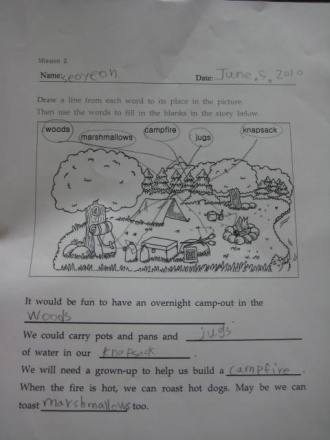 Mission 2.
Name: Seoyeon Date: June, 5, 2010
Draw a line from each word to its place in the picture.
Then use the words to fill in the blanks in the story below.
woods marshmallows campfire jugs knapsack
It would be fun to have an overnight camp-out in the
woods
We could carry pots and pans and jugs
of water in our knapsack.
We will need a grown-up to help us build a campfire.
When the fire is hot, we can roast hot dogs. May be we can
toast marshmallows too.